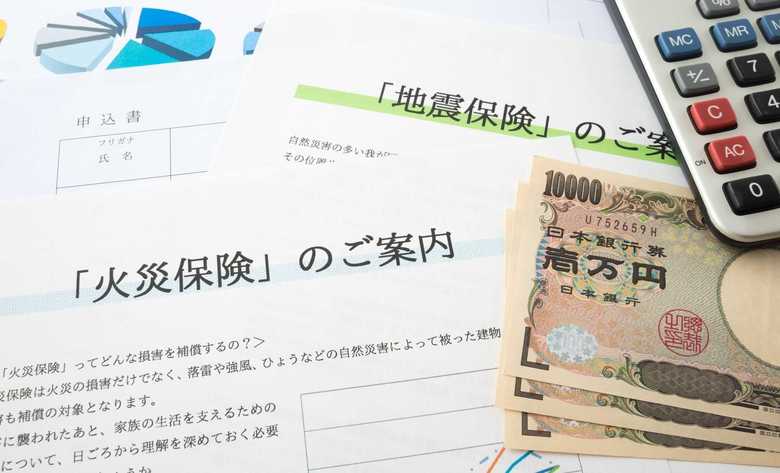 申込書
フリガナ
氏 名
「地震保険」のご案
自然災害の多い我が
その位置
「火災保険」のご案内
「火災保険」ってどんな損害を補償するの?>
災保険は火災の損害だけでなく、落雷や強風、ひょうなどの自然災害によって被った建物
も補償の対象となります。
に襲われたあと、家族の生活を支えるための
について、日ごろから理解を深めておく必要
しょうか
10000
U752659H
日本銀行券
壱万円
日本銀行
%
MC
MR
+/-
7
C
4
ON
AC
0